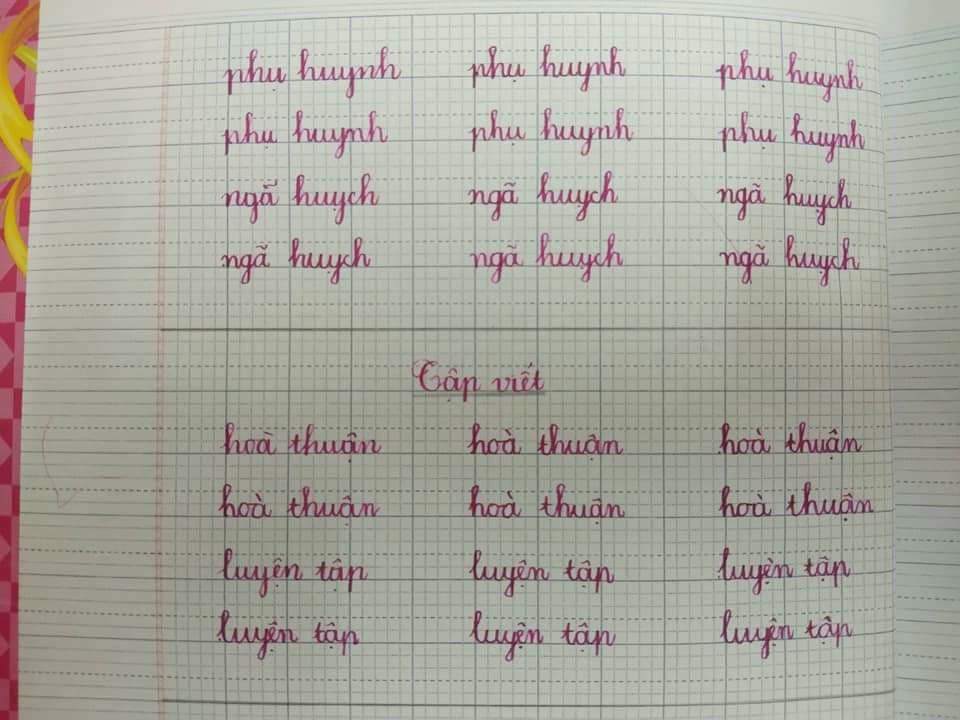 phụ huynh phụ huynh phụ huynh
phụ huynh phụ huynh phụ huynh
ngã huỵch ngã huỵch ngã huỵch
ngã huỵch ngã huỵch ngã huỵch
Tập viết
hoà thuận hoà thuận hoà thuận
hoà thuận hoà thuận hoà thuận
luyện tập luyện tập luyện tập
luyện tập luyện tập luyện tập